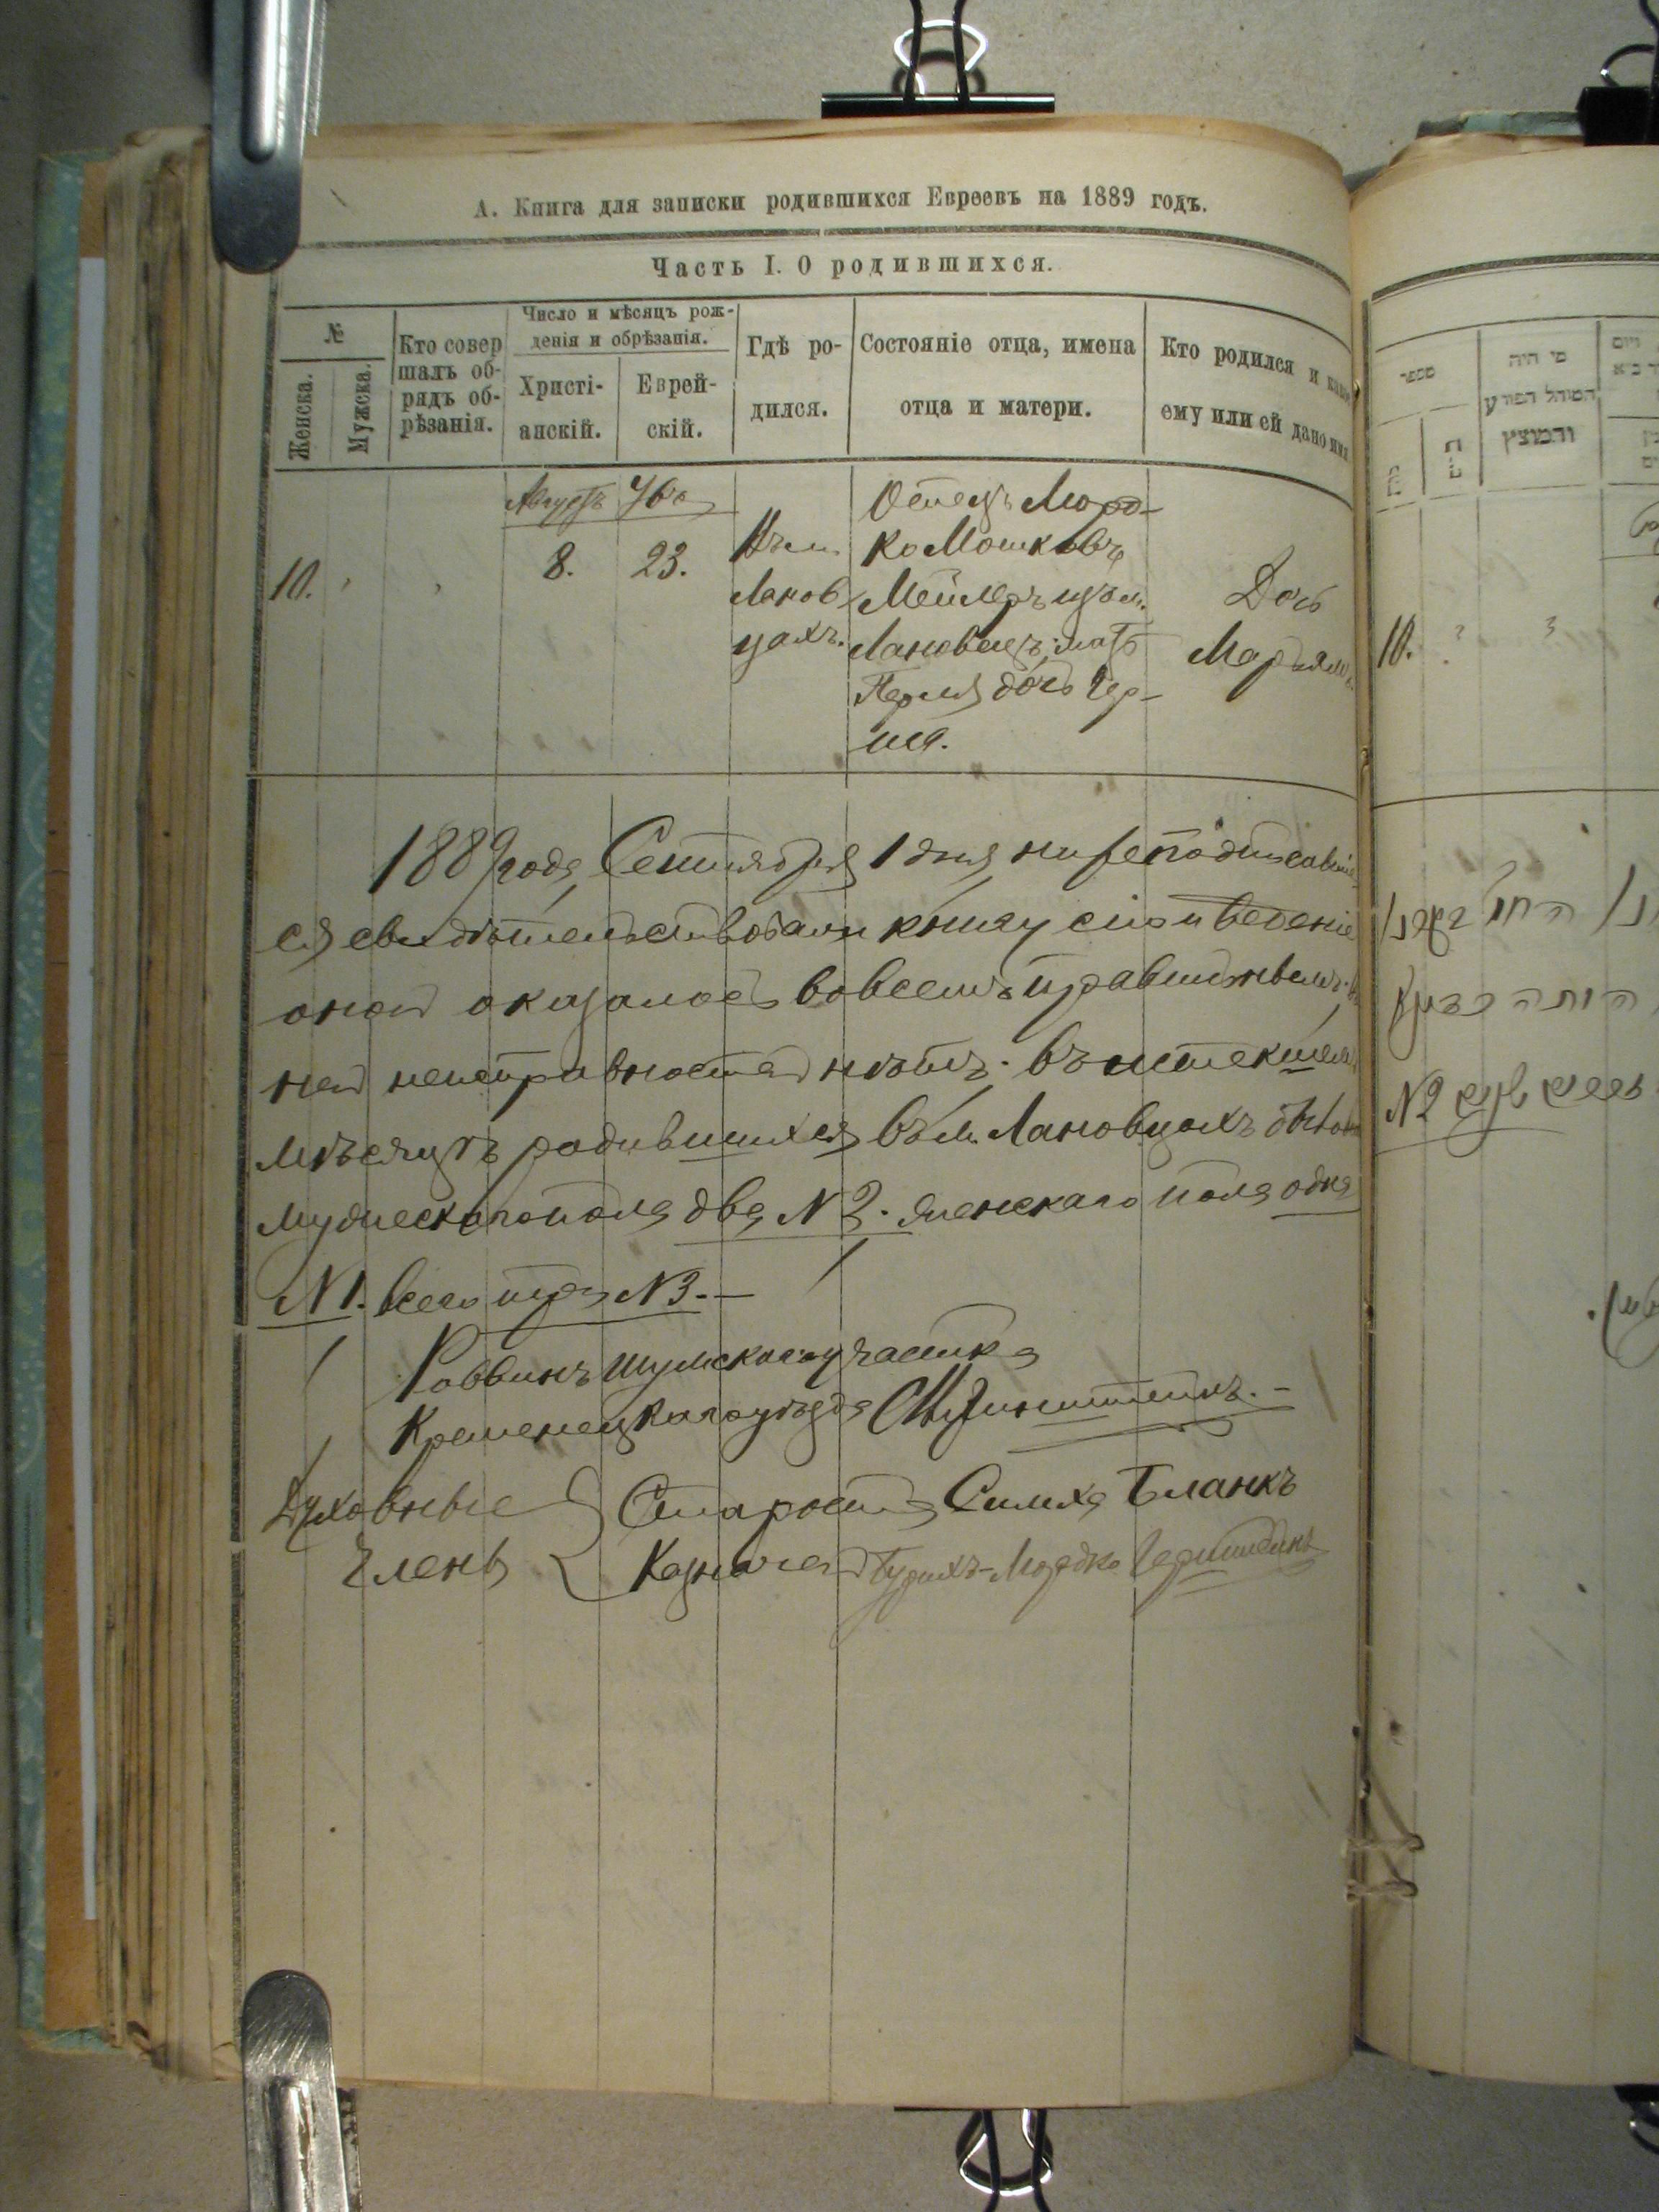 А. Книга для записки родившихся Евреевъ на 1889 годъ.
Часть I. О родившихся.
№
Женска.
Мужска.
Кто совер
шалъ об-
рядъ об-
рѣзанія.
Число и мѣсяцъ рож-
денія и обрѣзанія.
Христі-
анскій.
Еврей-
скій.
Гдѣ ро-
дился.
Состояніе отца, имена
отца и матери.
Кто родился и како
ему или ей дано имя
Августъ
10.
8.
23.
Въ м.
Ланов
цахъ.
Отецъ Морд-
ко Мошковъ
Мейлеръ изъ м.
Лановецъ, мать
Перля дочь Гер-
ша.
Дочь
Марьямъ
1889 года Сентября 1 дня нижеподписавшіе
ся свидѣтельствовали книгу сію и веденіе
оной оказалось во всемъ правильнымъ. въ
ней неисправностей нѣтъ. въ истекшемъ
мѣсяцѣ родившихся въ м. Лановцахъ было
мужескаго пола два N 2. женскаго пола одна
N 1. всего три N 3.—
Раввинъ Шумскаго участка
Кременецкаго уѣзда
Духовные
Члены
Староста Симха Бланкъ
Казначей Мордко
מספר
מי היה
המוהל הפורע
והמוצץ
10.
N2